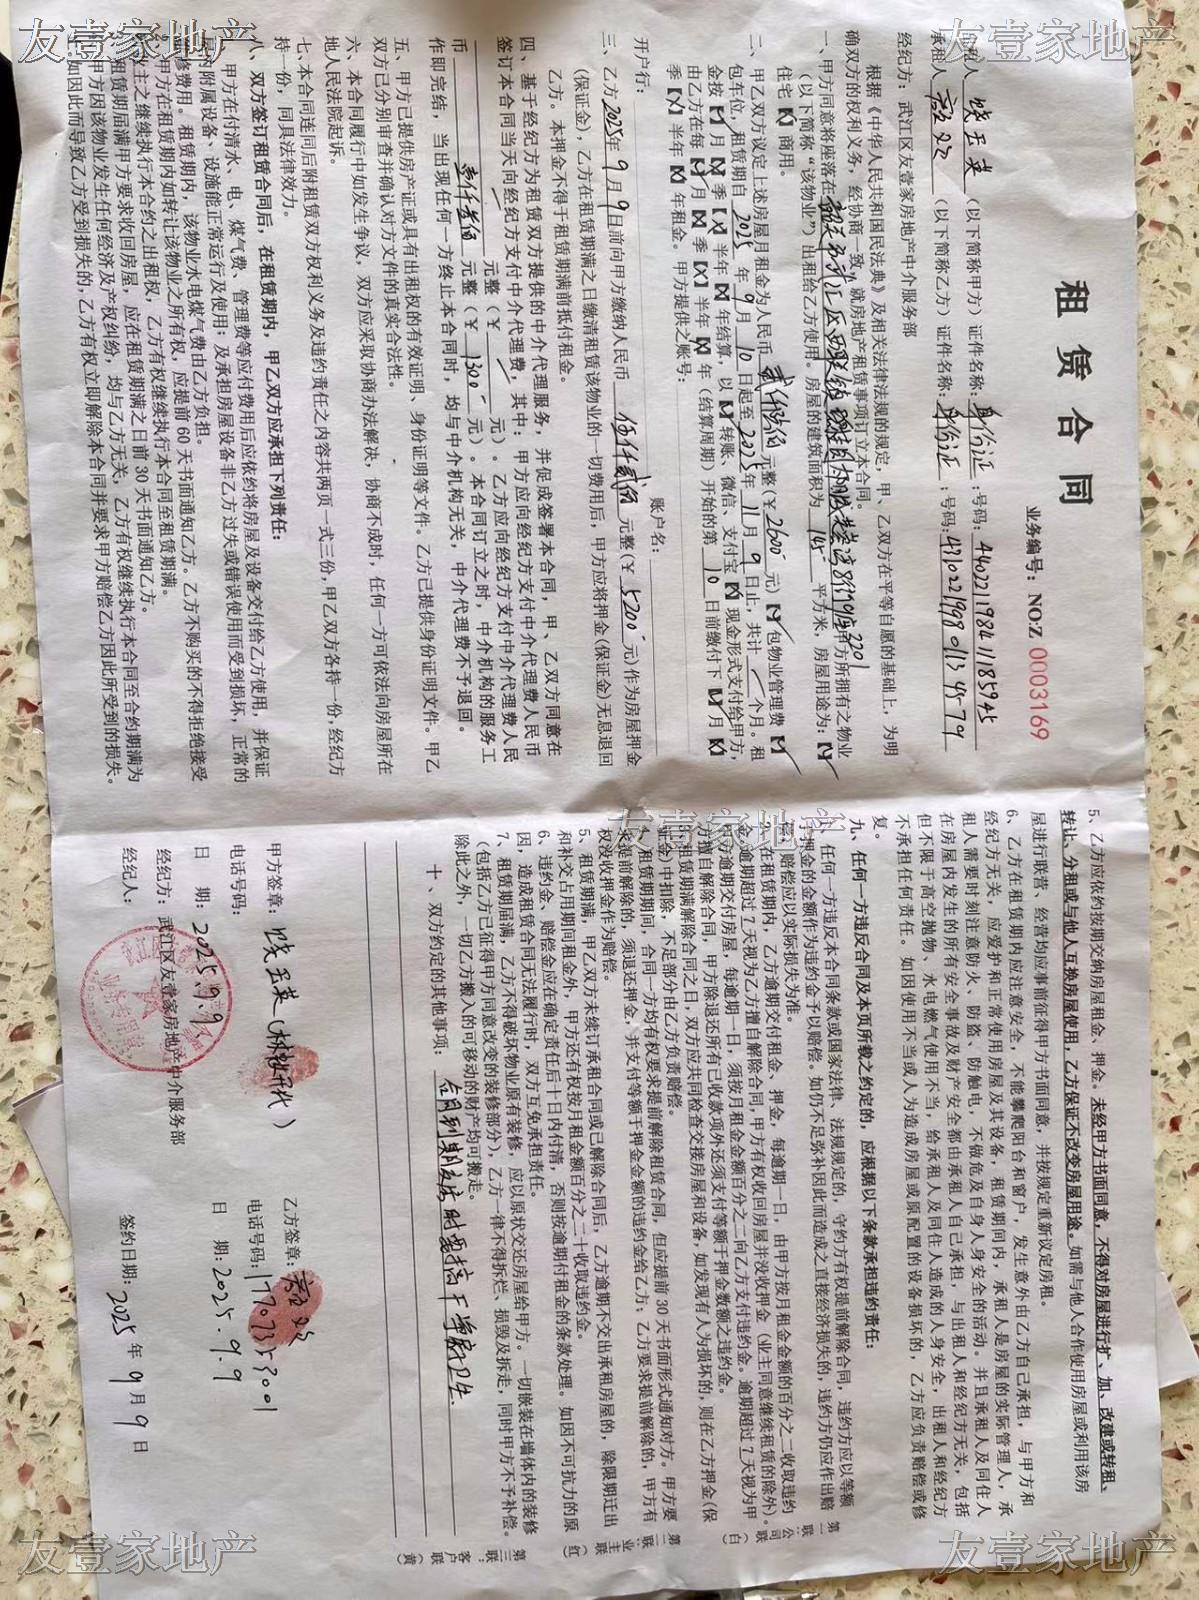 友壹家地产
友壹家地产
友壹家地产
友壹家地产
友壹家地产
租赁合同
业务编号：NO:Z 0003169
（以下简称甲方）证件名称：身份证：号码：440221198411185945
承租人（以下简称乙方）证件名称：身份证：号码：
经纪方：武江区友壹家房地产中介服务部
根据《中华人民共和国民法典》及相关法律法规的规定，甲、乙双方在平等自愿的基础上，为明
确双方的权利义务，经协商一致，就房地产租赁事项订立本合同。
一、甲方同意将座落在 甲方所拥有之物业
（以下简称“该物业”）出租给乙方使用。房屋的建筑面积为 145 平方米，房屋用途为：【✓】
住宅【✗】商用。
二、甲乙双方议定上述房屋月租金为人民币 贰仟陆佰 元整(￥2600 元)【✓】包物业管理费【✓】
包车位，租赁期自 2025 年 9 月 10 日起至 2025 年 11 月 9 日止，共计 个月。租
金按【✓】月【✗】季【✗】半年【✗】年结算，以【✓】转账、微信、支付宝【✗】现金形式支付给甲方，
由乙方在每【✓】月【✗】季【✗】半年【✗】年（结算周期）开始的第 10 日前缴付下【✓】月【✗】
季【✗】半年【✗】年租金。甲方提供之账号：
开户行： 账户名：
三、乙方 2025 年 9 月 9 日前向甲方缴纳人民币 伍仟贰佰 元整(￥5200 元)作为房屋押金
（保证金），乙方在租赁期满之日缴清租赁该物业的一切费用后，甲方应将押金(保证金)无息退回
乙方。本押金不得于租赁期满前抵付租金。
四、基于经纪方为租赁双方提供的中介代理服务，并促成签署本合同，甲、乙双方同意在
签订本合同当天向经纪方支付中介代理费，其中：甲方应向经纪方支付中介代理费人民币
元整（￥ 元）。乙方应向经纪方支付中介代理费人民
币 壹仟叁佰 元整（￥1300 元）。本合同订立之时，中介机构的服务工
作即完结，当出现任何一方终止本合同时，均与中介机构无关，中介代理费不予退回。
五、甲方已提供房产证或具有出租权的有效证明、身份证明等文件。乙方已提供身份证明文件。甲乙
双方已分别审查并确认对方文件的真实合法性。
六、本合同履行中如发生争议，双方应采取协商办法解决，协商不成时，任何一方可依法向房屋所在
地人民法院起诉。
七、本合同连同后附租赁双方权利义务及违约责任之内容共两页一式三份，甲乙双方各持一份，经纪方
持一份，同具法律效力。
八、双方签订租赁合同后，在租赁期内，甲乙双方应承担下列责任：
甲方在付清水、电、煤气费、管理费等应付费用后应依约将房屋及设备交付给乙方使用，并保证
内附属设备、设施能正常运行及使用；及承担房屋设备非乙方过失或错误使用而受到损坏，正常的
修费用。租赁期内，该物业水电煤气费由乙方负担。
甲方在租赁期内如转让该物业之所有权，应提前60天书面通知乙方。乙方不购买的不得拒绝接受
业主之继续执行本合约之出租权，乙方有权继续执行本合同至租赁期满。
租赁期届满甲方要求收回房屋，应在租赁期满之日前30天书面通知乙方。
甲方因该物业发生任何经济及产权纠纷，均与乙方无关，乙方有权继续执行本合同至合约期满为
如因此而导致乙方受到损失的，乙方有权立即解除本合同并要求甲方赔偿乙方因此所受到的损失。
5、乙方应依约按期交纳房屋租金、押金。未经甲方书面同意，不得对房屋进行扩、加、改建或转租、
转让、分租或与他人互换房屋使用，乙方保证不改变房屋用途。如需与他人合作使用房屋或利用该房
屋进行联营、经营均应事前征得甲方书面同意，并按规定重新议定房租。
6、乙方在租赁期内应注意安全，不能攀爬阳台和窗户，发生意外由乙方自己承担，与甲方和
经纪方无关，应爱护和正常使用房屋及其设备，租赁期间内，承租人是房屋的实际管理人，承
租人需要时刻注意防火、防盗、防触电，不做危及自身人身安全的活动。并且承租人及同住人
在房屋内发生的所有安全事故及财产安全都由承租人自己承担，与出租人和经纪方无关，包括
但不限于高空抛物、水电燃气使用不当，给承租人及同住人造成的人身安全，出租人和经纪方
不承担任何责任。如因使用不当或人为造成房屋或原配置的设备损坏的，乙方应负责赔偿或修
复。
九、任何一方违反合同及本页所载之约定的，应根据以下条款承担违约责任：
任何一方违反本合同条款或国家法律、法规规定的，守约方有权提前解除合同，违约方应以等额
于押金的金额作为违约金予以赔偿。如仍不足弥补因此而造成之直接经济损失的，违约方仍应作出赔
偿，赔偿应以实际损失为准。
2、在租赁期内，乙方逾期交付租金、押金，每逾期一日，由甲方按月租金金额的百分之二收取违约
金；逾期超过7天视为乙方擅自解除合同，甲方有权收回房屋并没收押金（业主同意继续租赁的除外）。
甲方逾期交付房屋，每逾期一日，须按月租金金额百分之二向乙方支付违约金。逾期超过7天视为甲
方擅自解除合同，甲方除退还所有已收款项外还须支付等额于押金数额之违约金。
3、租赁期满解除合同之日，双方应共同检查交接房屋和设备，如发现有人为损坏的，则在乙方押金（保
证金）中扣除，不足部分由乙方负责赔偿。
4、租赁期期间，合同一方均有权要求提前解除租赁合同，但应提前30天书面形式通知对方。甲方要
求提前解除的，须退还押金，并支付等额于押金金额的违约金给乙方；乙方要求提前解除的，甲方有
权没收押金作为赔偿。
5、租赁期满，甲乙双方未续订承租合同或已解除合同后，乙方逾期不交出承租房屋的，除限期迁出
和补交占用期间租金外，甲方还有权按月租金额百分之二十收取违约金。
6、违约金、赔偿金应在确定责任后十日内付清，否则按逾期付租金的条款处理。如因不可抗力的原
因，造成租赁合同无法履行时，双方互免承担责任。
7、租赁期届满，乙方不得破坏物业原有装修，应以原状交还房屋给甲方。一切嵌装在墙体内的装修
（包括乙方已征得甲方同意改变的装修部分），乙方一律不得拆烂、损毁及拆走，同时甲方不予补偿。
除此之外，一切乙方搬入的可移动的财产均可搬走。
十、双方约定的其他事项：合同到期交房时要搞干净卫生.
第一联：公司（白）
第二联：业主（红）
第三联：客户（黄）
甲方签章： 乙方签章：
电话号码： 电话号码：17707353001
日 期：2025.9.9 日 期：2025.9.9
经纪方：武江区友壹家房地产中介服务部
经纪人： 签约日期：2025 年 9 月 9 日